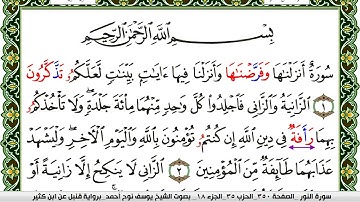 بِسْمِ ٱللَّهِ ٱلرَّحْمَٰنِ ٱلرَّحِيمِ
سُورَةٌ أَنزَلْنَٰهَا وَفَرَّضْنَٰهَا وَأَنزَلْنَا فِيهَا ءَايَٰتٍۭ بَيِّنَٰتٍ لَّعَلَّكُمُۥ تَذَّكَّرُونَ
١ ٱلزَّانِيَةُ وَٱلزَّانِي فَٱجْلِدُوا۟ كُلَّ وَٰحِدٍ مِّنْهُمَا مِا۟ئَةَ جَلْدَةٍ وَلَا تَأْخُذْكُمُۥ
بِهِمَا رَأَفَةٌ فِي دِينِ ٱللَّهِ إِن كُنتُمُۥ تُؤْمِنُونَ بِٱللَّهِ وَٱلْيَوْمِ ٱلْآخِرِ وَلْيَشْهَدْ
عَذَابَهُمَا طَآئِفَةٌ مِّنَ ٱلْمُؤْمِنِينَ ٢ ٱلزَّانِي لَا يَنكِحُ إِلَّا زَانِيَةً أَوْ
سورة النور - الصفحة ٣٥٠ - الحزب ٣٥ - الجزء ١٨ - بصوت الشيخ يوسف نوح أحمد - برواية قنبل عن ابن كثير